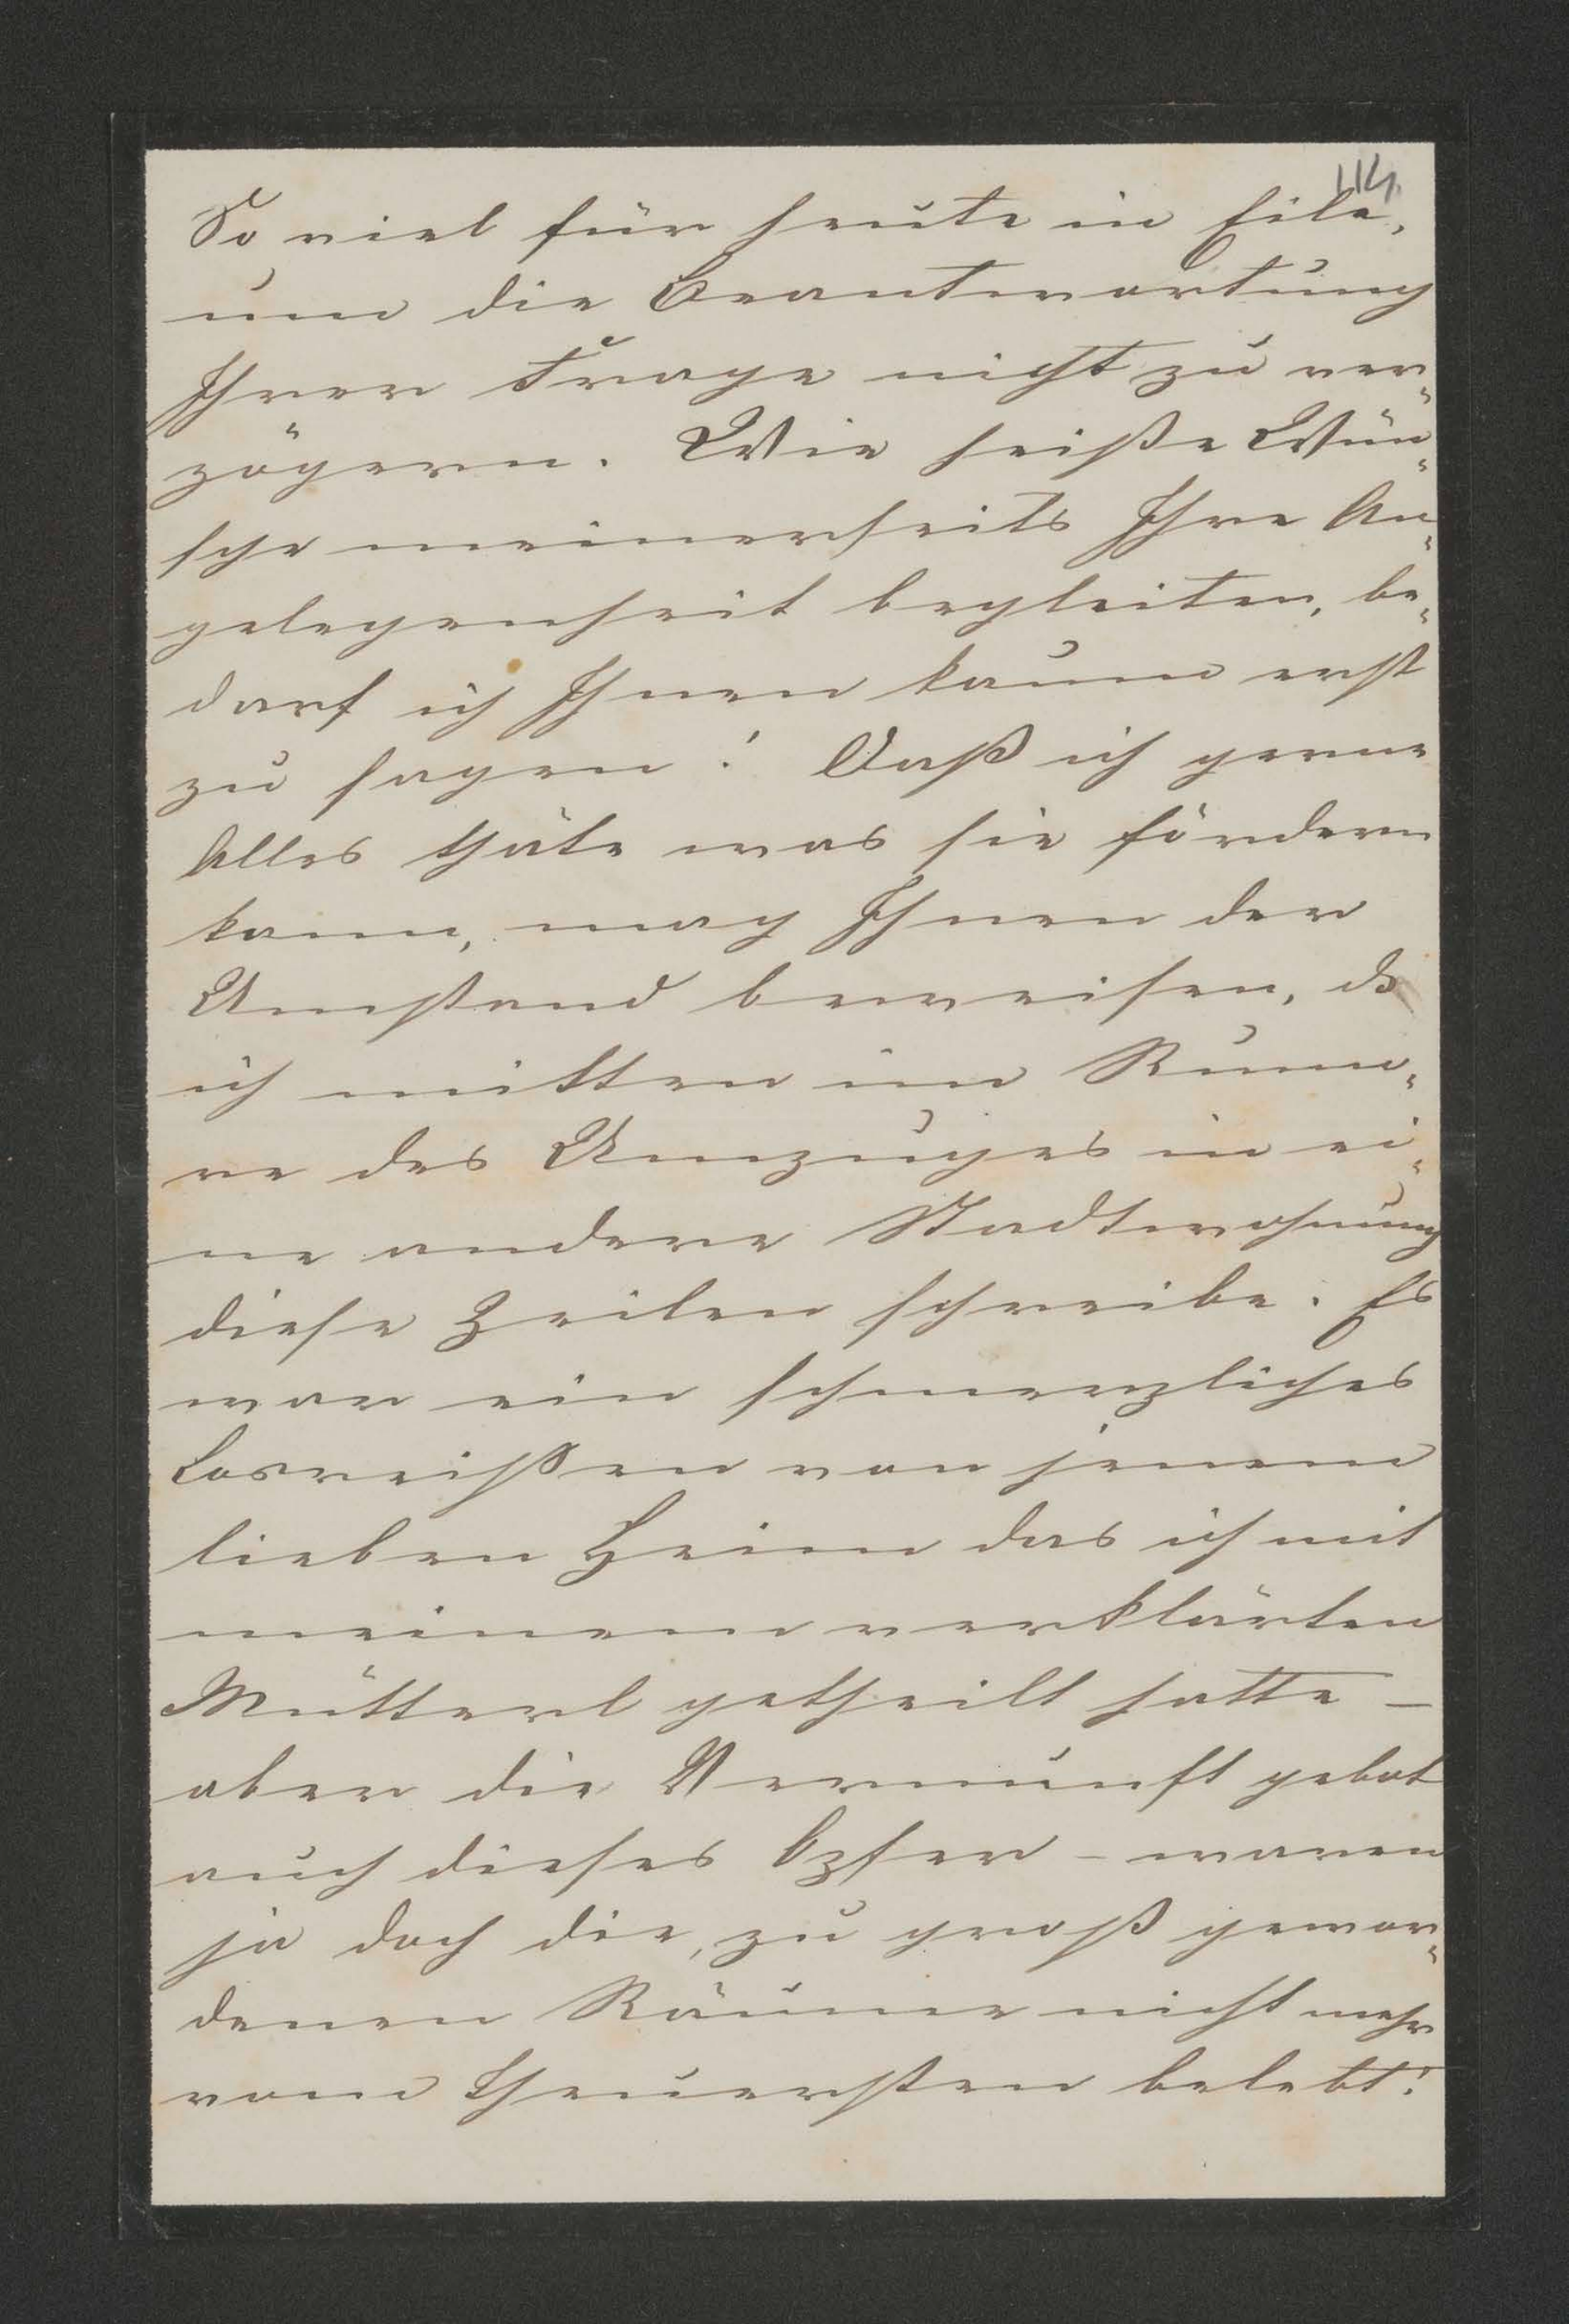 114.
So viel für heute in Eile,
um die Beantwortung
Ihrer Frage nicht zu ver-
zögern. Wie heiße Wün-
sche meinerseits Ihre An-
gelegenheit begleiten, be-
darf ich Ihnen kaum erst
zu sagen! Daß ich gerne
Alles thäte was sie fördern
kann, mag Ihnen der
Umstand beweisen, dß
ich mitten im Rumo-
re des Umzuges in ei-
ne andere Stadtwohnung
diese Zeilen schreibe. Es
war ein schmerzliches
Losreißen von jenem
lieben Heim das ich mit
meinem verklärten
Mütterl getheilt hatte –
aber die Vernunft gebot
auch dieses Opfer – waren
ja doch die, zu groß gewor-
denen Räume nicht mehr
vom Theuersten belebt!